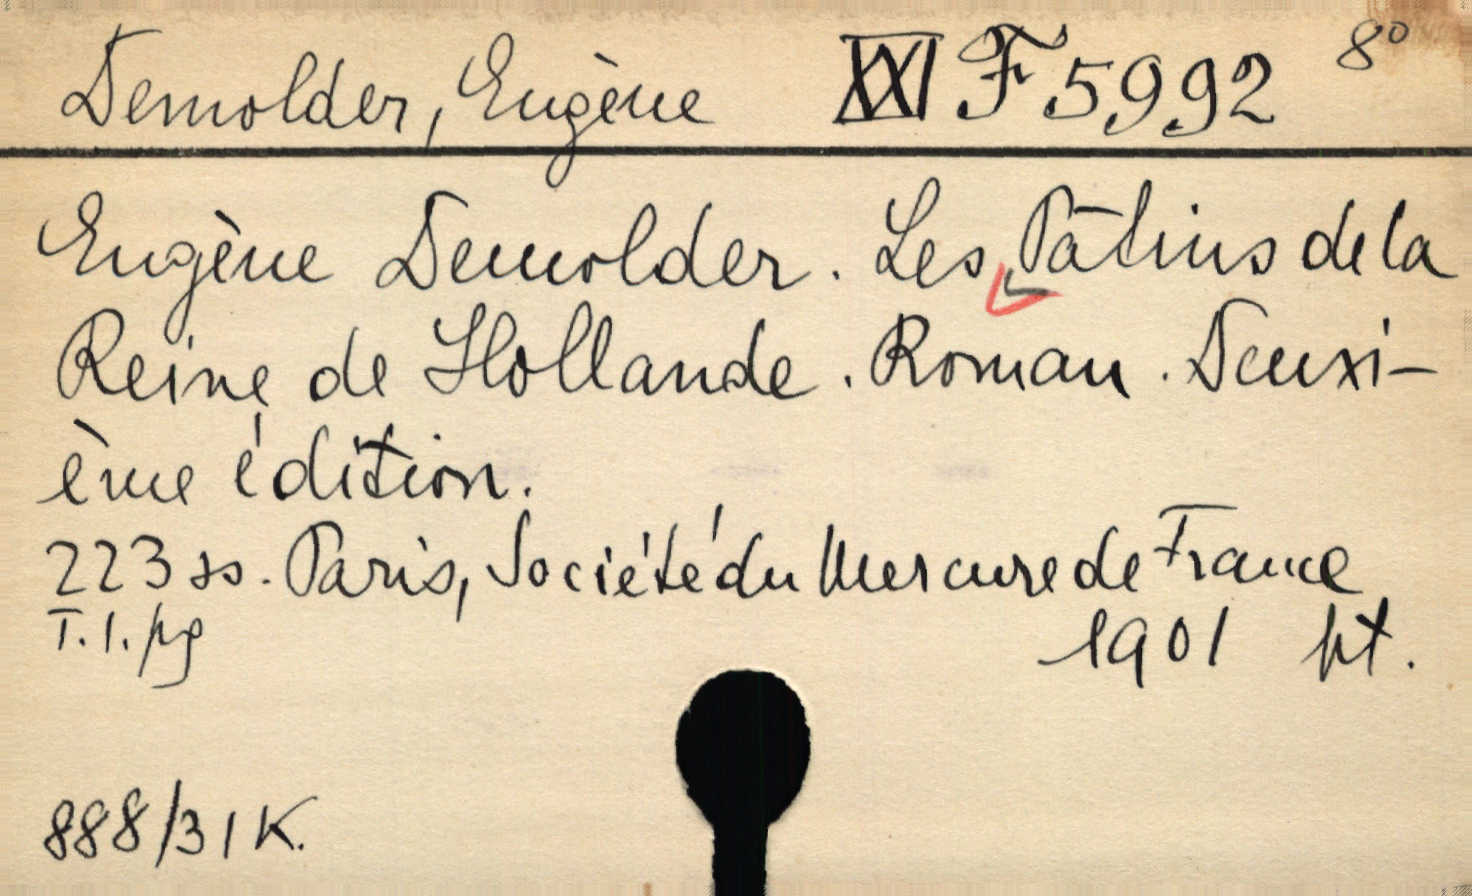 Demolder, Eugène XXI F 5992 8°
Eugène Demolder. Les Pâtins de la
Reine de Hollande. Roman. Deuxi-
ème édition.
223 ss. Paris, Société du Mercure de France
T. 1. pg 1901 pt.
888/31 K.